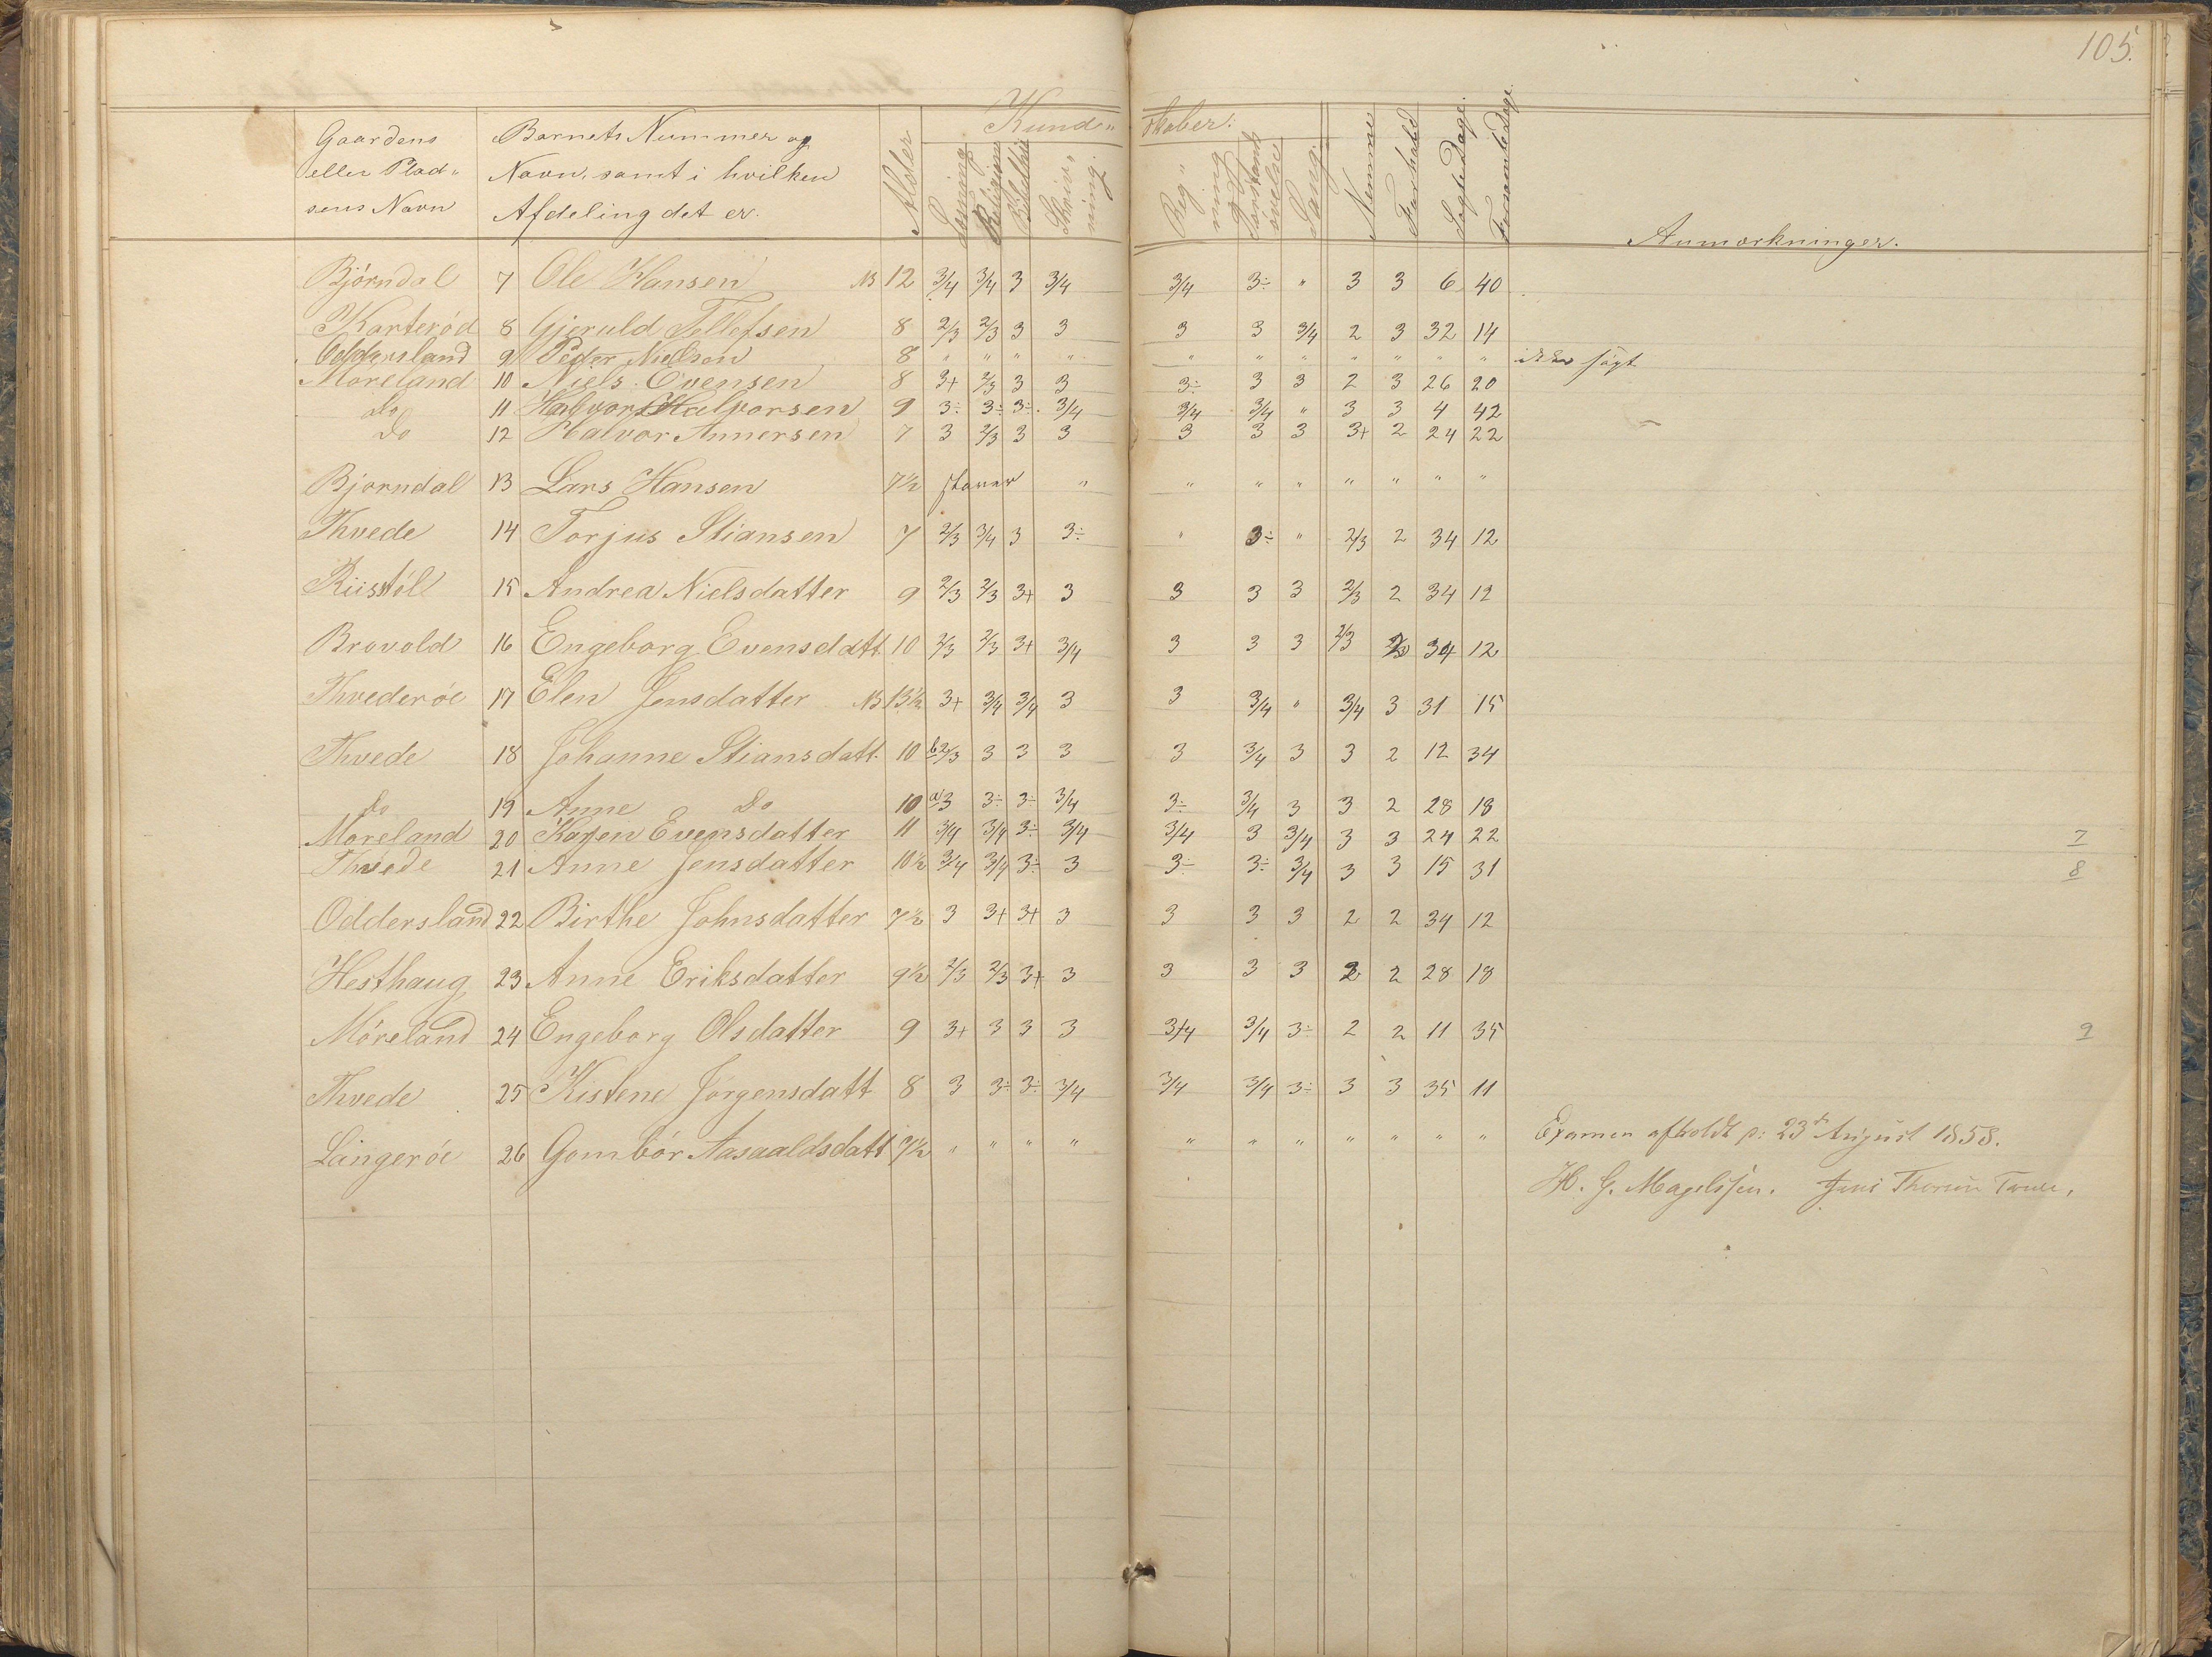 105.
Gaardens eller Plad„ sens Navn | Barnets Nummer og Navn, samt i hvilken Afdeling det er. | Alder | Kund„ skaber: Læsning | Religion | Bibelhist | Skriv„ ning. | Reg„ ning | Forstands øvelse | Sang. | Nemme | Forhold | Søgte Dage. | Forsømte Dage. | Anmærkninger.
Bjørndal 7 Ole Hansen NB 12 3/4 3/4 3 3/4 3/4 3÷ " 3 3 6 40
Karterød 8 Gjeruld Tellefsen 8 2/3 2/3 3 3 3 3 3/4 2 3 32 14
Oddersland 9 Peder Nielsen 8 " " " " " " " " " " " ikke søgt
Møreland 10 Niels Evensen 8 3+ 2/3 3 3 3÷ 3 3 2 3 26 20
Do 11 Halvor Halvorsen 9 3÷ 3÷ 3÷ 3/4 3/4 3/4 " 3 3 4 42
Do 12 Halvor Annersen 7 3 2/3 3 3 3 3 3 3+ 2 24 22
Bjørndal 13 Lars Hansen 7½ staver " " " " " " " "
Thvede 14 Torjus Stiansen 7 2/3 3/4 3 3÷ " 3÷ " 2/3 2 34 12
Riisstøl 15 Andrea Nielsdatter 9 2/3 2/3 3+ 3 3 3 3 2/3 2 34 12
Brovold 16 Engeborg Evensdatt. 10 2/3 2/3 3+ 3/4 3 3 3 2/3 34 12
Thvederøe 17 Elen Jensdatter NB 13½ 3+ 3/4 3/4 3 3 3/4 " 3/4 3 31 15
Thvede 18 Johanne Stiansdatt. 10 b 2/3 3 3 3 3 3/4 3 3 2 12 34
Do 19 Anne Do 10 a 3 3÷ 3÷ 3/4 3÷ 3/4 3 3 2 28 18
Møreland 20 Karen Evensdatter 11 3/4 3/4 3÷ 3/4 3/4 3 3/4 3 3 24 22 7
Thvede 21 Anne Jensdatter 10½ 3/4 3/4 3÷ 3 3÷ 3÷ 3/4 3 3 15 31 8
Oddersland 22 Birthe Johnsdatter 7½ 3 3+ 3+ 3 3 3 3 2 2 34 12
Hesthaug 23 Anne Eriksdatter 9½ 2/3 2/3 3+ 3 3 3 3 2 2 28 18
Møreland 24 Engeborg Olsdatter 9 3+ 3 3 3 3/4 3/4 3÷ 2 2 11 35 9
Thvede 25 Kistene Jørgensdatt 8 3 3÷ 3÷ 3/4 3/4 3/4 3÷ 3 3 35 11
Langerøe 26 Gombør Aasaaldsdatt 7½ " " " " " " " " " " "
Examen afholdt d: 23de August 1858.
H. G. Magelssen. Jens